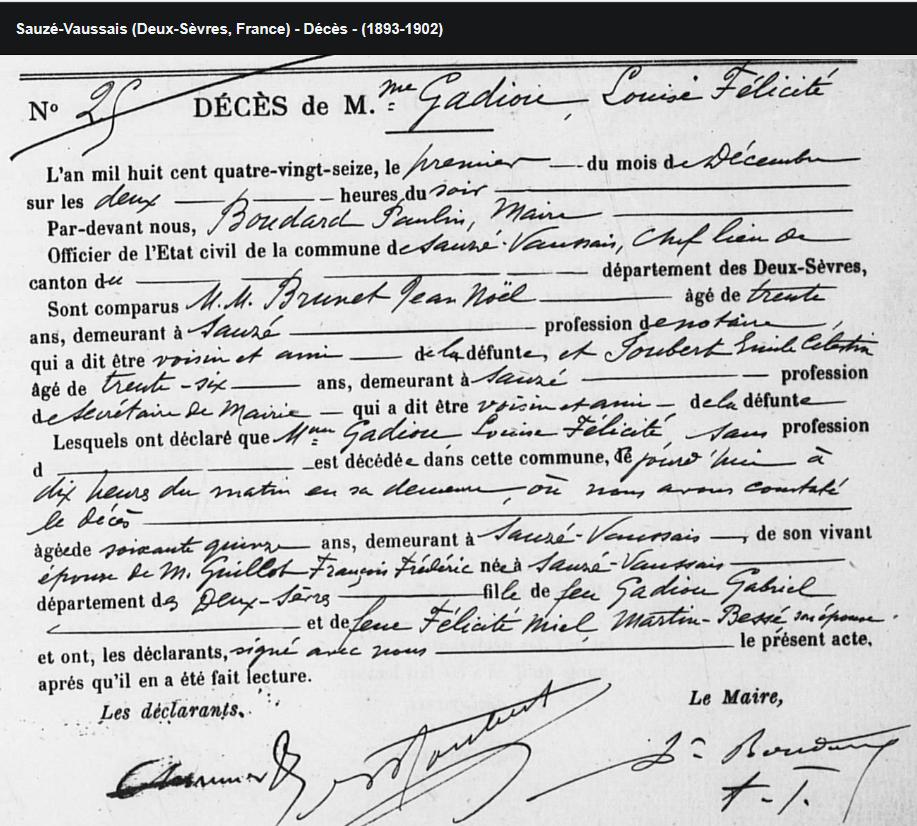 Sauzé-Vaussais (Deux-Sèvres, France) - Décès - (1893-1902)
N° 25 DÉCÈS de M.me Gadiou, Louise Félicité
L'an mil huit cent quatre-vingt-seize, le premier du mois de Décembre
sur les deux heures du soir
Par-devant nous, Boudard Paulin, Maire
Officier de l'Etat civil de la commune de Sauzé-Vaussais, chef lieu de
canton du département des Deux-Sèvres,
Sont comparus M.M. Brunet Jean Noël âgé de trente
ans, demeurant à Sauzé profession de notaire,
qui a dit être voisin et ami de la défunte, et Joubert Emile Célestin
âgé de trente-six ans, demeurant à Sauzé profession
de Secrétaire de Mairie qui a dit être voisin et ami de la défunte
Lesquels ont déclaré que Mme Gadiou Louise Félicité, sans profession
d est décédée dans cette commune, ce jourd'hui à
dix heures du matin en sa demeure, où nous avons constaté
le décès
âgée de soixante quinze ans, demeurant à Sauzé-Vaussais, de son vivant
épouse de M. Guillot François Frédéric née à Sauzé-Vaussais
département des Deux-Sèvres fille de feu Gadiou Gabriel
et de feue Félicité Miel, Martin-Bessé son épouse.
et ont, les déclarants, signé avec nous le présent acte,
aprés qu'il en a été fait lecture.
Les déclarants, Le Maire,
Joubert